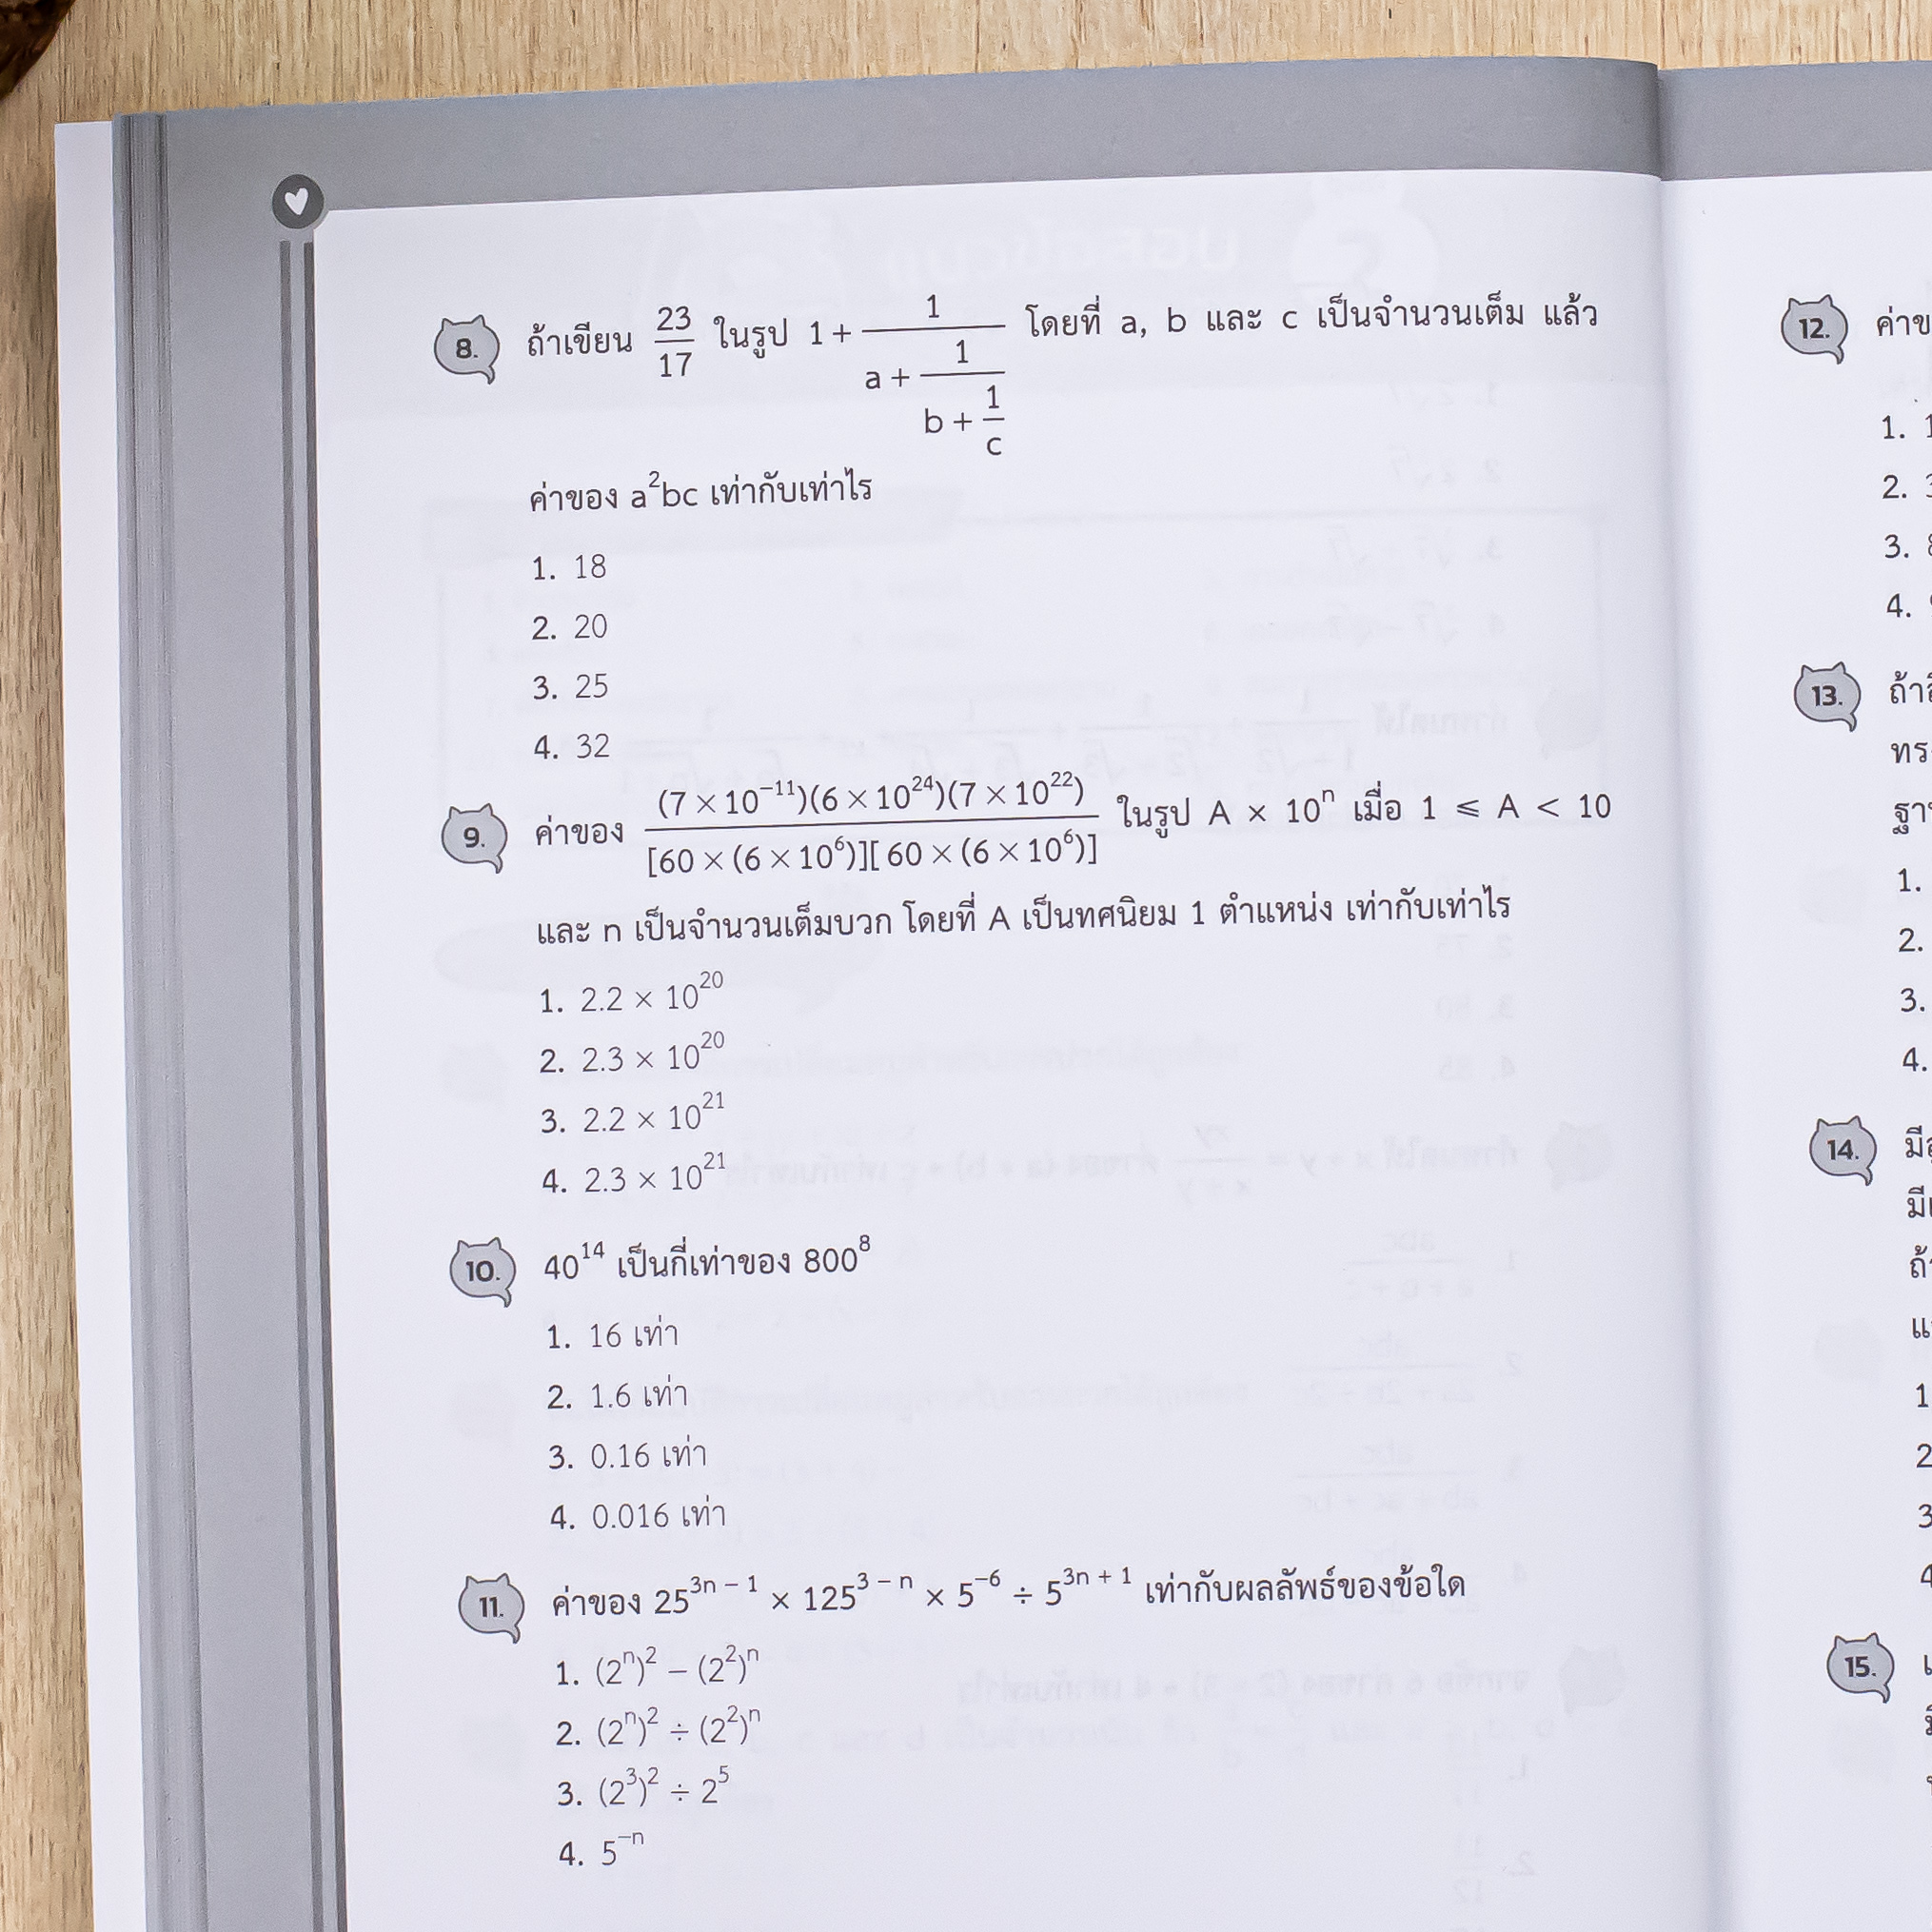 8. ถ้าเขียน 23/17 ในรูป 1 + 1/(a + 1/(b + 1/c)) โดยที่ a, b และ c เป็นจำนวนเต็ม แล้ว
ค่าของ a²bc เท่ากับเท่าไร
1. 18
2. 20
3. 25
4. 32
9. ค่าของ (7 × 10⁻¹¹)(6 × 10²⁴)(7 × 10²²) / [60 × (6 × 10⁶)][60 × (6 × 10⁶)] ในรูป A × 10ⁿ เมื่อ 1 ⩽ A < 10
และ n เป็นจำนวนเต็มบวก โดยที่ A เป็นทศนิยม 1 ตำแหน่ง เท่ากับเท่าไร
1. 2.2 × 10²⁰
2. 2.3 × 10²⁰
3. 2.2 × 10²¹
4. 2.3 × 10²¹
10. 40¹⁴ เป็นกี่เท่าของ 800⁸
1. 16 เท่า
2. 1.6 เท่า
3. 0.16 เท่า
4. 0.016 เท่า
11. ค่าของ 25³ⁿ⁻¹ × 125³⁻ⁿ × 5⁻⁶ ÷ 5³ⁿ⁺¹ เท่ากับผลลัพธ์ของข้อใด
1. (2ⁿ)² − (2²)ⁿ
2. (2ⁿ)² ÷ (2²)ⁿ
3. (2³)² ÷ 2⁵
4. 5⁻ⁿ
12.
1.
2.
3.
4.
13.
1.
2.
3.
4.
14.
1
2
3
4
15.